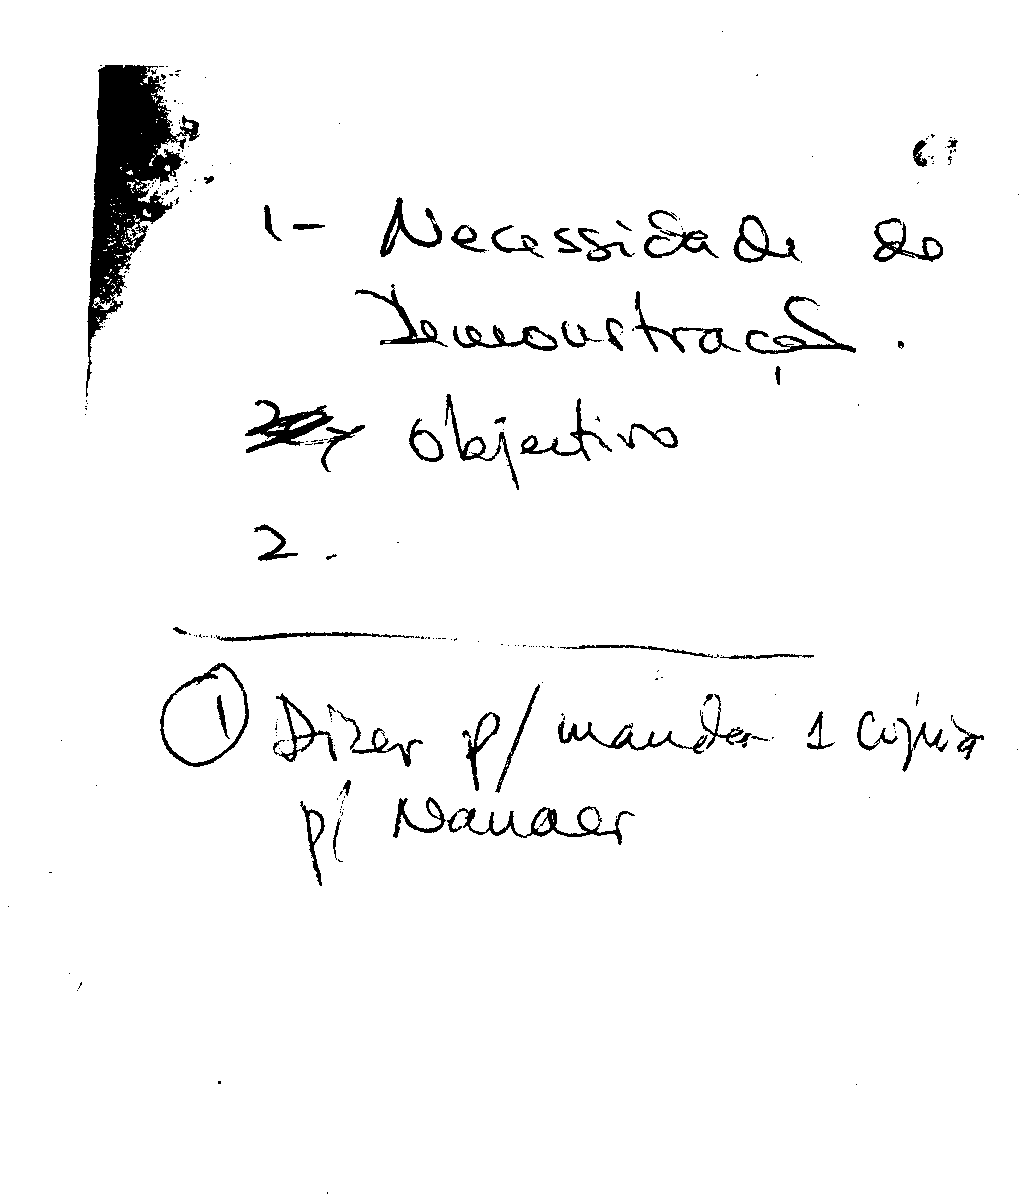 1- Necessidade de
Demonstração.
Objectivo
2.
① Dizer p/ mandar 1 cópia
p/